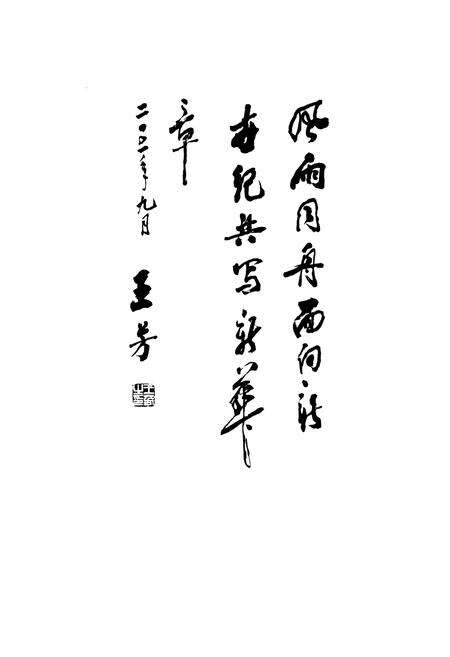 风雨同舟面向新
世纪共写新华
章
二〇〇一年九月 王芳